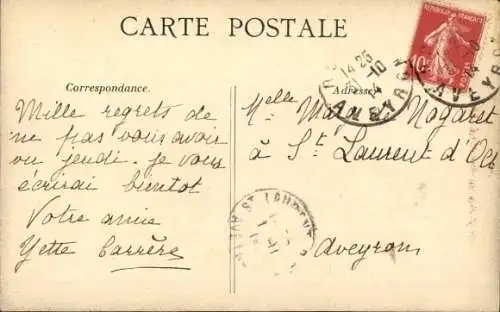 CARTE POSTALE
Correspondance.
Mille regrets de
ne pas vous avoir
vu jeudi. je vous
écrirai bientot
Votre amie
Yette Carrère
Adresse
Melle Nogaret
à St Laurent d'Olt
Aveyron
REPUBLIQUE FRANÇAISE
10
14 25
-10
14
AVEYRON
AVEYRON
ST LAURENT